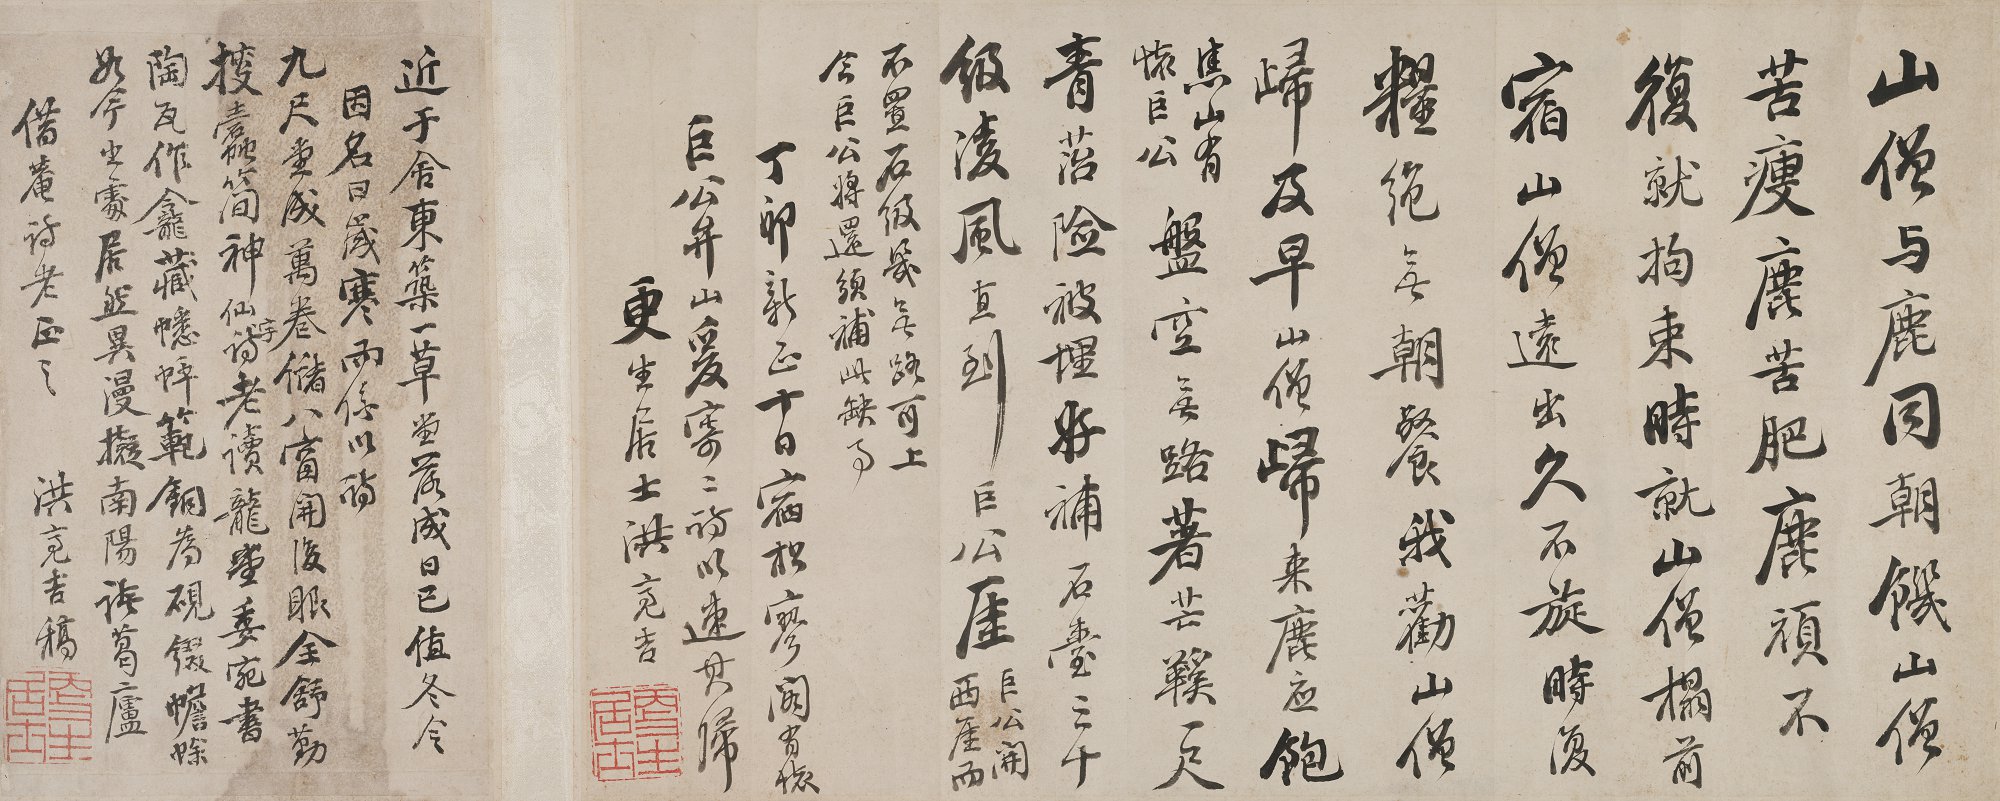 山僧与鹿同朝饑山僧
苦瘦鹿苦肥鹿頑不
復就拘束時就山僧榻前
宿山僧遠出久不旋時復
糧絶無朝餐我勸山僧
歸及早山僧歸來鹿應飽
焦山有
懷巨公
盤空無路著芒鞵一尺
青苔險被埋好補石臺三十
級凌風直到巨公厓
巨公開
西厓而
不置石級幾無路可上
今巨公將還須補此缺了
丁卯新正十日宿松寥閣有懷
巨公并山爰寄二詩以速其歸
更生居士洪亮吉
近于舍東築一草堂落成日已值冬令
因名曰歲寒而係以詩
九尺堂成萬卷儲八窗開後眼全舒勤
搜蠹簡神仙字詩老讀龍堂委宛書
陶瓦作龕藏幰㡓範銅為硯綴蟾蜍
如今出處居然異漫擬南陽諸葛廬
借菴詩老正之
洪亮吉稿
更生
居士